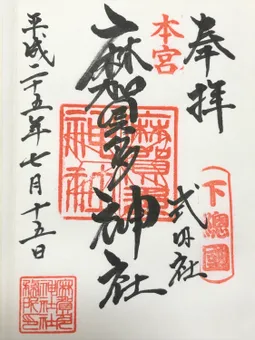 奉拝
下總國
式内社
本宮
麻賀多神社
麻賀多神社
平成二十五年七月十五日